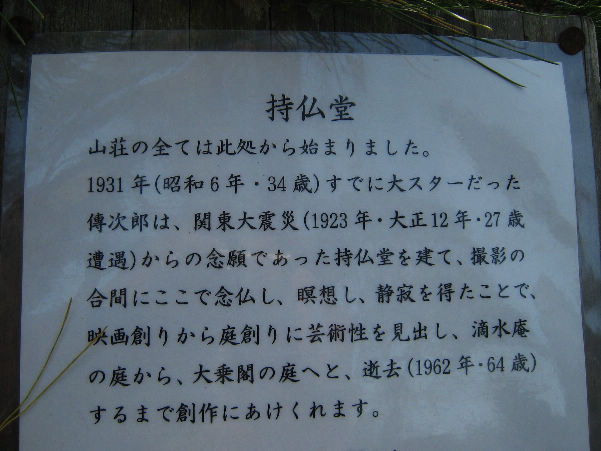 持仏堂
山荘の全ては此処から始まりました。
1931年(昭和6年・34歳)すでに大スターだった
傳次郎は、関東大震災(1923年・大正12年・27歳
遭遇)からの念願であった持仏堂を建て、撮影の
合間にここで念仏し、瞑想し、静寂を得たことで、
映画創りから庭創りに芸術性を見出し、滴水庵
の庭から、大乗閣の庭へと、逝去(1962年・64歳)
するまで創作にあけくれます。